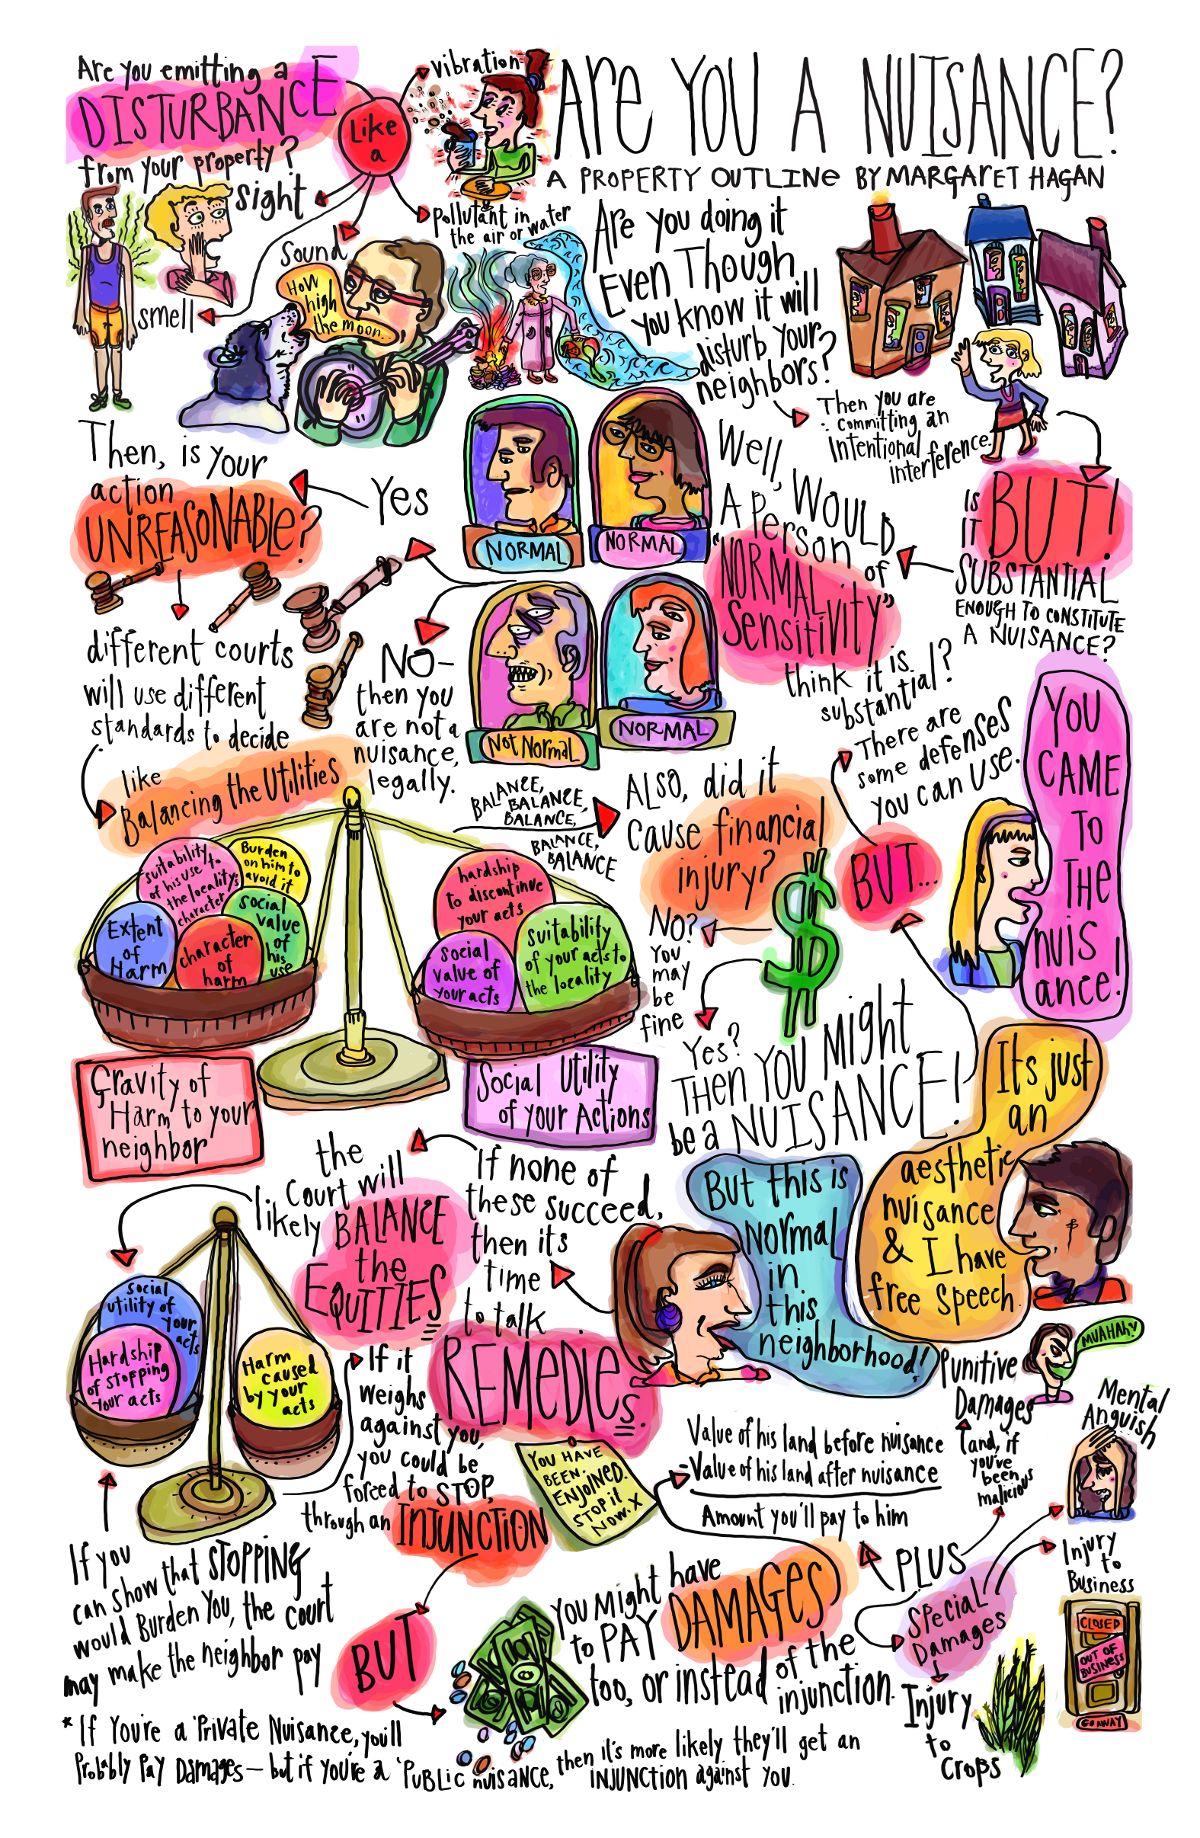 ARE YOU A NUISANCE?
A PROPERTY OUTLINE BY MARGARET HAGAN
Are you emitting a
DISTURBANCE
from your property?
Like
a
vibration
sight
pollutant in
the air or water
Sound
smell
How
high
the moon...
Are you doing it
Even Though
you know it will
disturb your
neighbors?
Then you are
committing an
Intentional
interference.
BUT!
IS
IT
SUBSTANTIAL
ENOUGH TO CONSTITUTE
A NUISANCE?
Well, WOULD
A Person of
"NORMAL
Sensitivity"
think it is
substantial?
NORMAL
NORMAL
Not Normal
NORMAL
Yes
NO-
then you
are not a
nuisance,
legally.
Then, is your
action
UNREASONABLE?
different courts
will use different
standards to decide
like
Balancing the Utilities
BALANCE,
BALANCE,
BALANCE,
BALANCE,
BALANCE
suitability to
of his use
the locality's
character
Burden
on him to
avoid it
Extent
of
Harm
character
of
harm
social
value
of
his
use
hardship
to discontinue
your acts
social
value of
your acts
suitability
of your acts to
the locality
Gravity of
Harm to your
neighbor
Social Utility
of your Actions
ALSO, did it
cause financial
injury?
NO?
You
may
be
fine
Yes?
THEN YOU Might
be a NUISANCE!
BUT...
There are
some defenses
you can use.
YOU
CAME
TO
THE
nuis
ance!
It's just
an
aesthetic
nuisance
& I have
free speech.
But this is
Normal
in
this
neighborhood!
If none of
these succeed,
then its
time
to talk
REMEDIES.
the
Court will
likely BALANCE
the
EQUITIES
social
utility of
your
acts
Hardship
of stopping
your acts
Harm
caused
by your
acts
If it
weighs
against you,
you could be
forced to STOP,
through an INJUNCTION
YOU HAVE
BEEN
ENJOINED.
STOP it
NOW. X
If you
can show that STOPPING
would Burden You, the court
may make the neighbor pay
BUT
You Might have
to PAY DAMAGES
too, or instead of the
injunction.
Value of his land before nuisance
-Value of his land after nuisance
Amount you'll pay to him
PLUS
Special
Damages
Punitive
Damages
(and, if
you've
been
malicious
MUAHAH
Mental
Anguish
Injury
to
Business
CLOSED
OUT OF
BUSINESS
GO AWAY
Injury
to
Crops
* If You're a 'Private Nuisance, you'll
Probably Pay Damages - but if you're a 'Public nuisance, then it's more likely they'll get an
INJUNCTION against you.